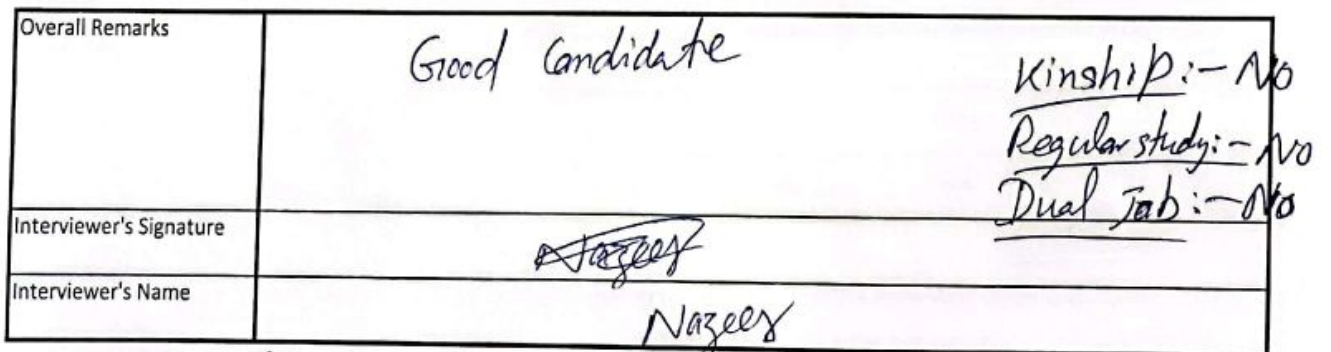 Overall Remarks
Good Candidate
Kinship:- No
Regular study:- No
Dual Job:- No
Interviewer's Signature
Nazeer
Interviewer's Name
Nazeer